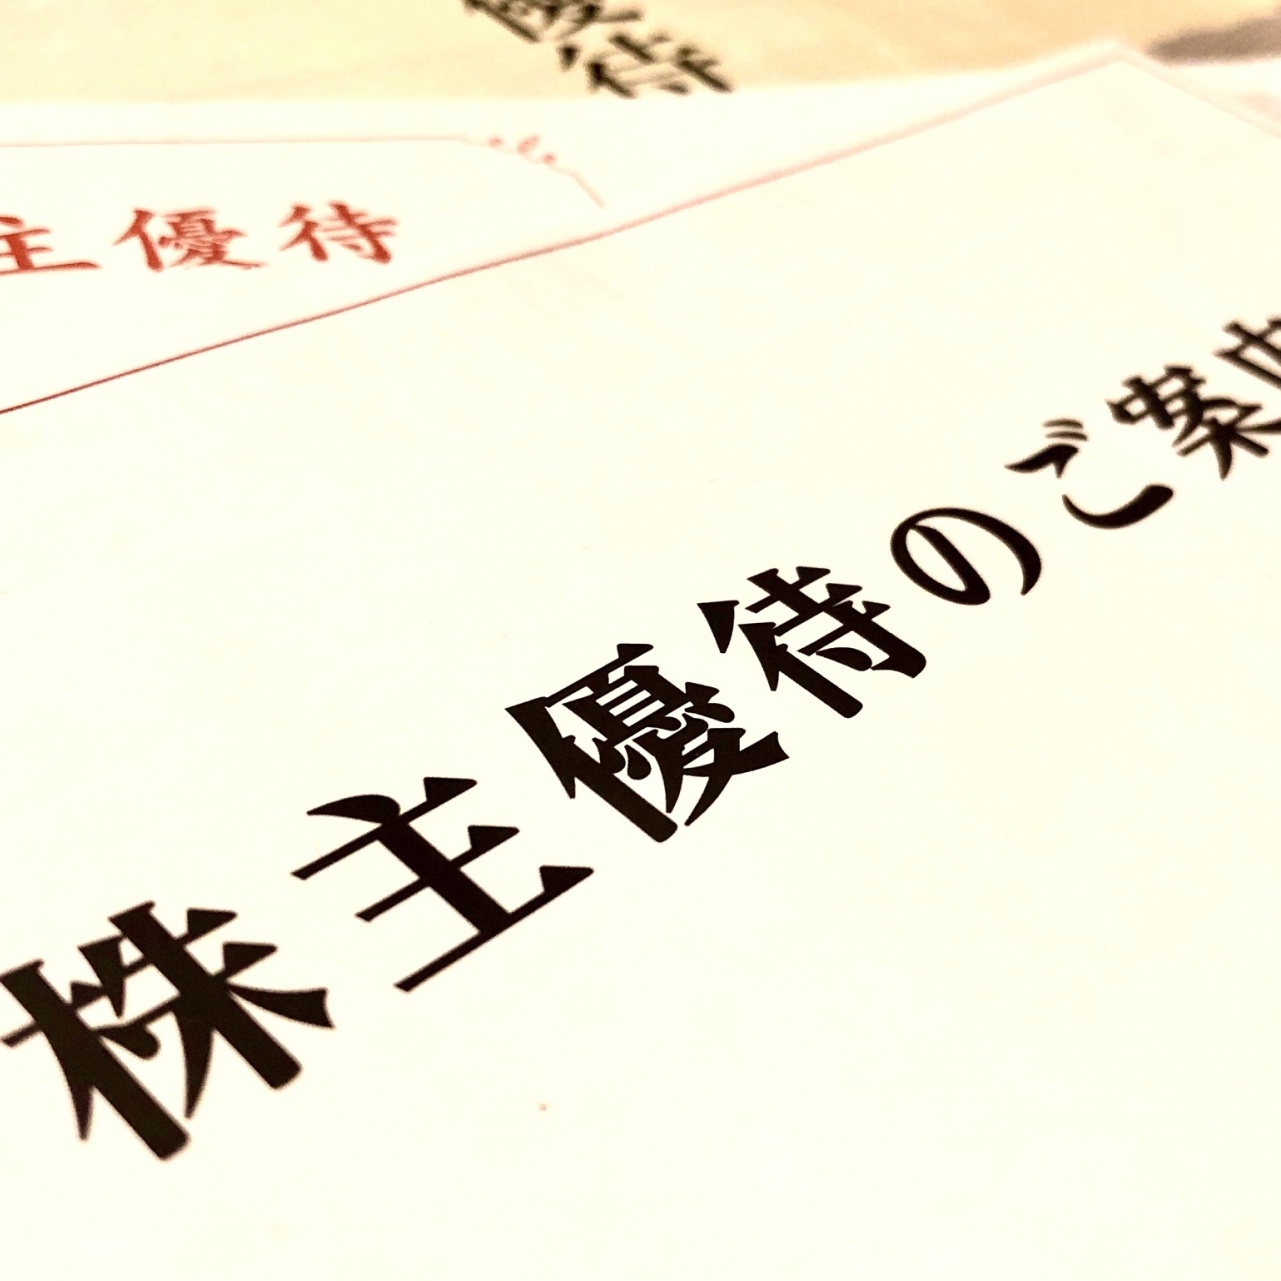 優待
主優待
株主優待のご案内